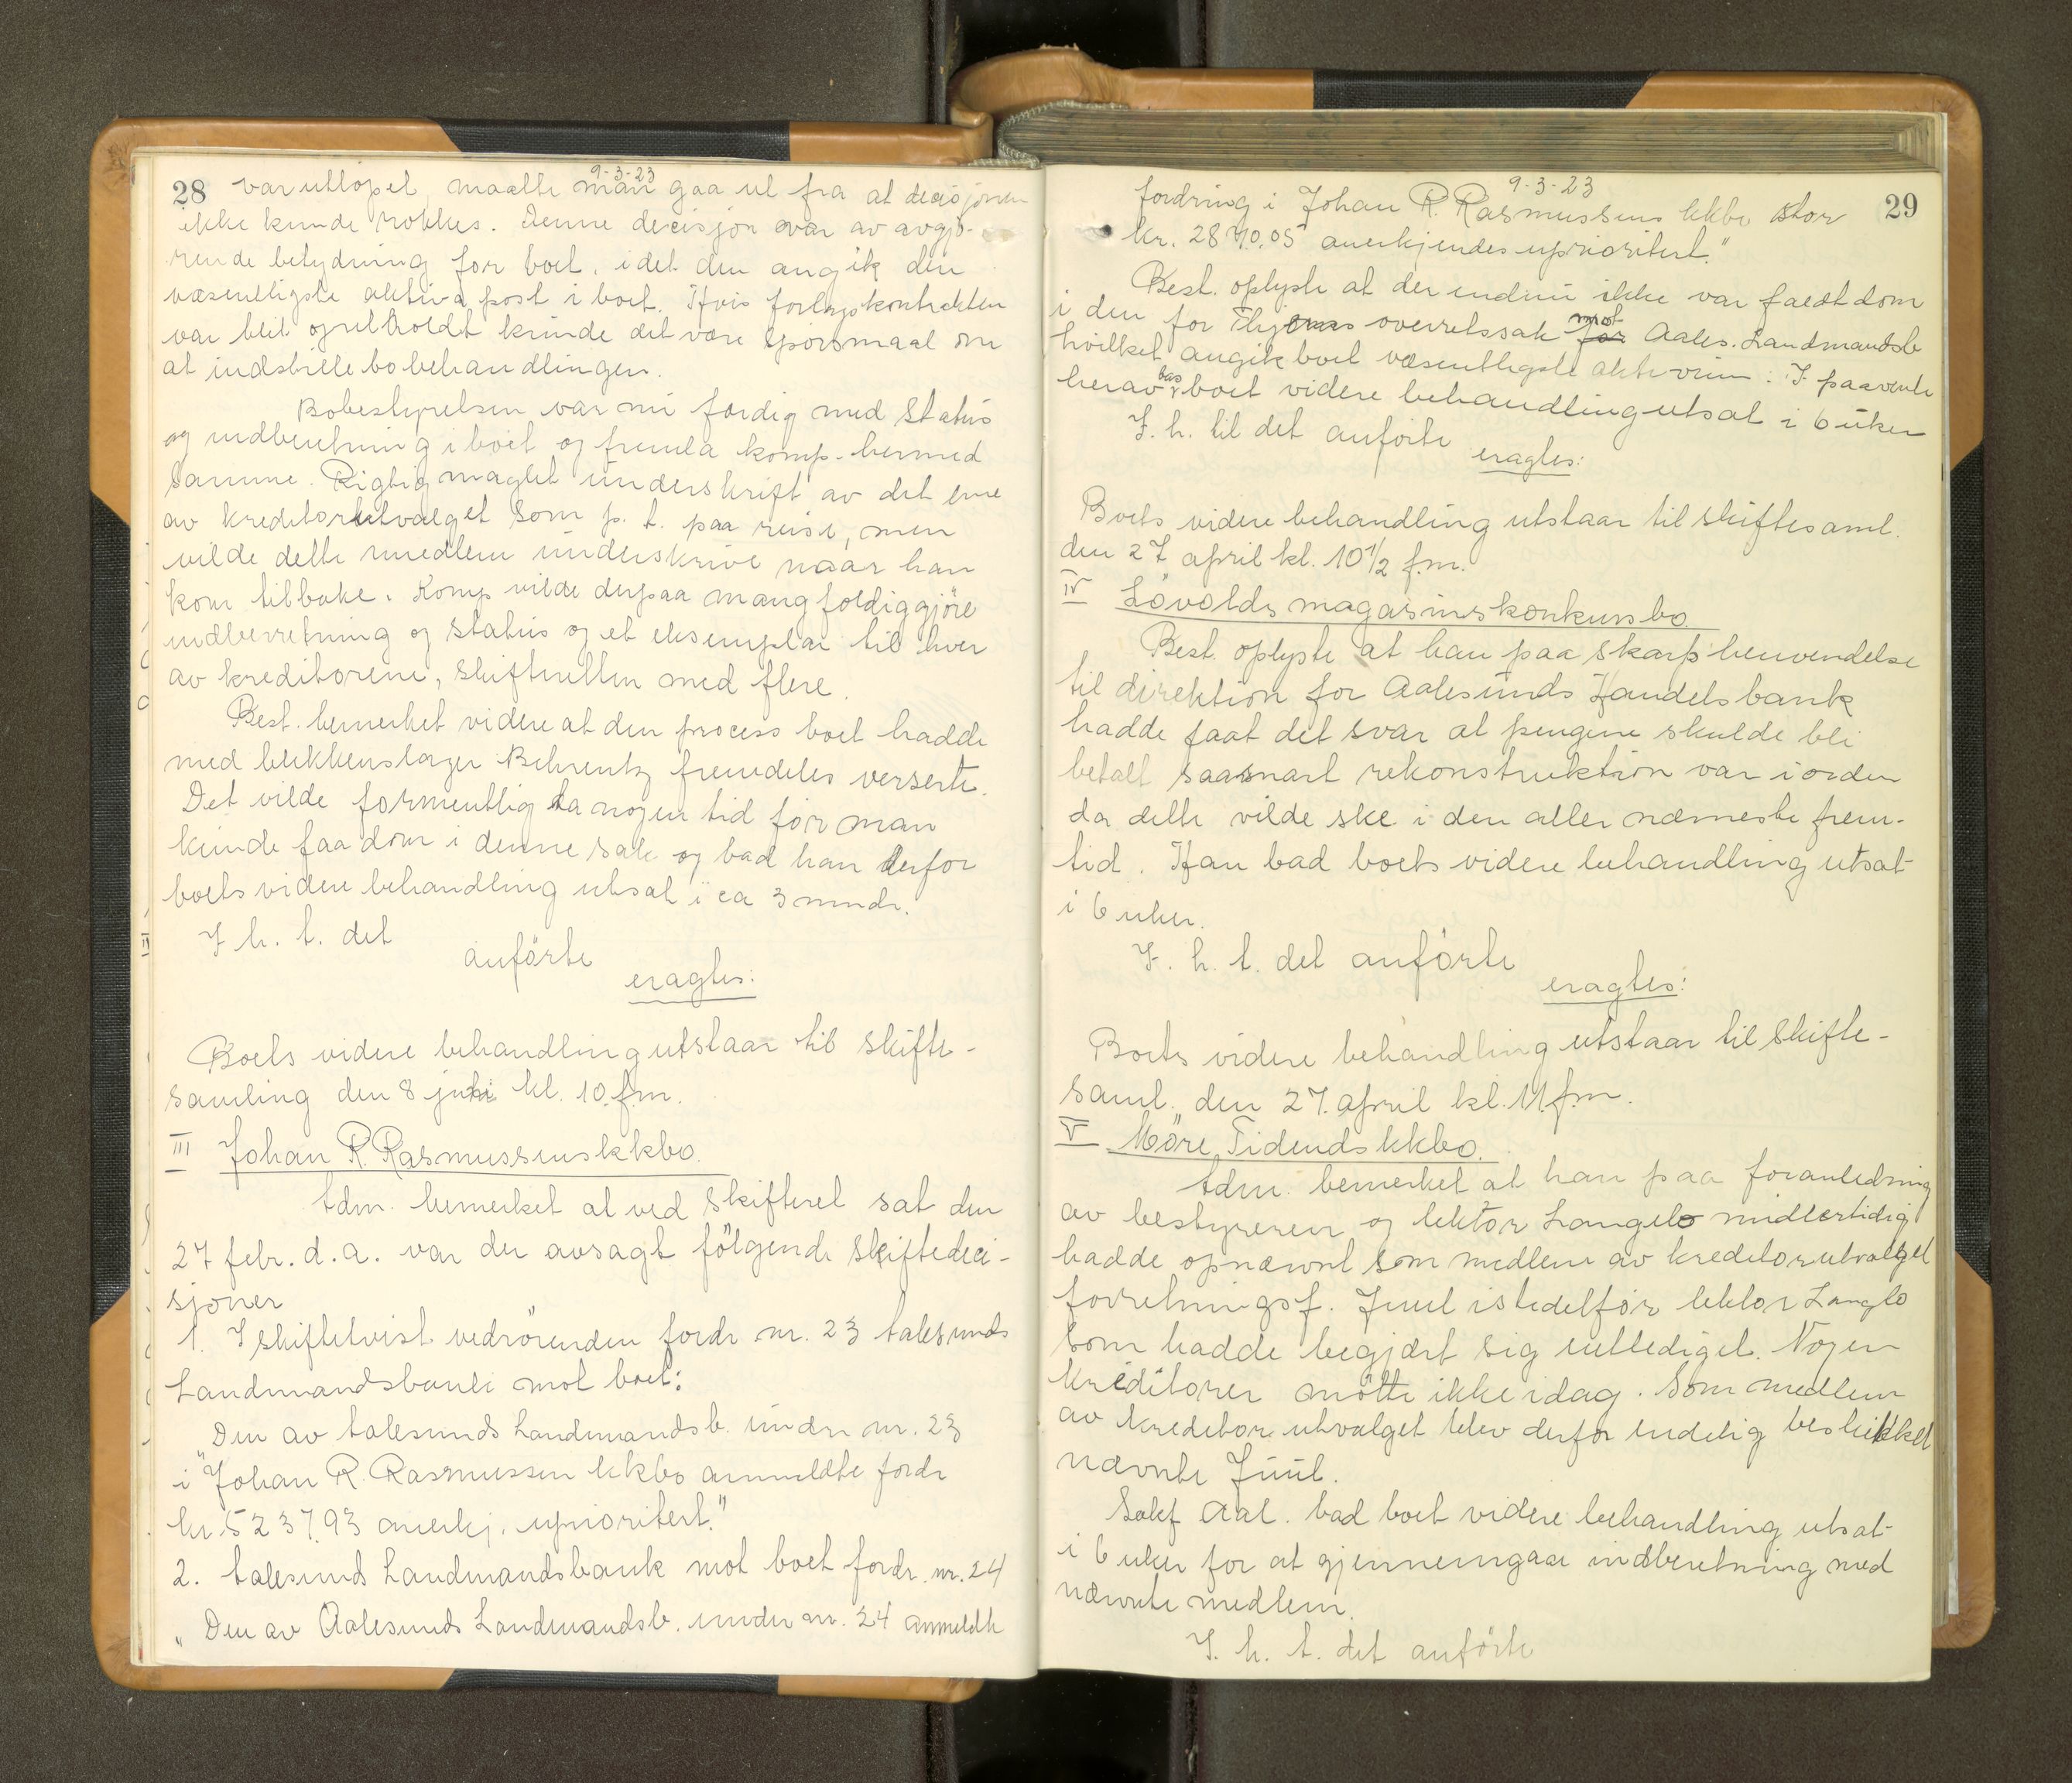 28
9-3-23
var utløpet, maatte man gaa ut fra at decisjonen
ikke kunde rokkes. Denne decisjon var av avgjø-
rende betydning for boet, idet den angik den
væsentligste aktiva post i boet. Hvis forlagskontrakten
var blit opretholdt kunde det være spørsmaal om
at indstille bobehandlingen.
Bobestyrelsen var nu færdig med status
og indberetning i boet og fremla komp. hermed
samme. Rigtig maglet underskrift av det ene
av kreditorutvalget som p. t. paa reise, men
vilde dette medlem underskrive naar han
kom tilbake. Komp vilde derpaa mangfoldiggjöre
indberetning og status og et eksemplar til hver
av kreditorene, skifteretten med flere.
Best. bemerket videre at den process boet hadde
med blikkenslager Behrentz fremdeles verserte.
Det vilde formentlig ta nogen tid før man
kunde faa dom i denne sak og bad han derfor
boets videre behandling utsat i ca 3 mndr.
I h. t. det
anförte
eragtes:
Boets videre behandling utstaar til skifte-
samling den 8 juni kl. 10 f.m.
III Johan R. Rasmussens kkbo.
Adm. bemerket at ved skifteret sat den
27 febr. d.a. var der avsagt fölgende skiftedeci-
sjoner
1. I skiftetvist vedrörenden fordr nr. 23 Aalesunds
Landmandsbank mot boet:
"Den av Aalesunds Landmandsb. under nr. 23
i Johan R. Rasmussen kkbo anmeldte fordr
kr 5237.93 anerkj. uprioritert."
2. Aalesund Landmandsbank mot boet fordr. nr. 24
"Den av Aalesunds Landmandsb. under nr. 24 anmeldte
29
9-3-23
fordring i Johan R. Rasmussens kkbo stor
kr. 2840.05 anerkjendes uprioritert."
Best. oplyste at der endnu ikke var faldt dom
i den for overretssak for mot Aales. Landmandsb
hvilket angik boet væsentligste aktivum. I paavente
herav bas boet videre behandling utsat i 6 uker
I. h. til det anförte
eragtes:
Boets videre behandling utstaar til skiftesaml.
den 27 april kl. 10 1/2 f.m.
IV Lövolds magasins konkursbo
Best. oplyste at han paa skarp henvendelse
til direktion for Aalesunds Handelsbank
hadde faat det svar at pengene skulde bli
betalt saasnart rekonstruktion var i orden
da dette vilde ske i den aller nærmeste frem-
tid. Han bad boets videre behandling utsat
i 6 uker.
I. h. t. det anförte
eragtes:
Boets videre behandling utstaar til skifte-
saml. den 27. april kl. 11 f.m.
V Möre Tidends kkbo.
Adm. bemerket at han paa foranledning
av bestyreren og lektor Langelo midlertidig
hadde opnævnt som medlem av kreditorutvalget
forretningsf. Juul istedetfor lektor Langlo
som hadde begjært sig uttlediget. Nogen
kreditorer møtte ikke idag. Som medlem
av kreditorutvalget blev derfor endelig beskikket
nævnte Juul.
Sakf Aal. bad boet videre behandling utsat
i 6 uker for at gjennemgaa indberetning med
nævnte medlem.
I. h. t. det anförte